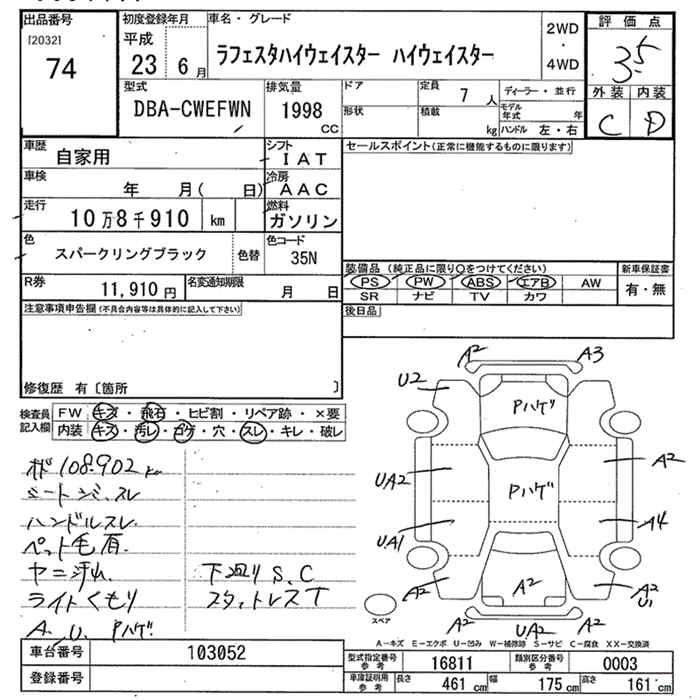 出品番号
[2032]
74
初度登録年月
平成
23 6 月
車名・グレード
ラフェスタハイウェイスター ハイウェイスター
2WD
・
4WD
評価点
3.5
外装 内装
C D
型式
DBA-CWEFWN
排気量
1998
CC
ドア
定員
7 人
ディーラー・並行
形状
積載
kg
モデル年式 年
ハンドル 左・右
車歴
自家用
シフト
IAT
セールスポイント(正常に機能するものに限ります)
車検
年 月( 日)
冷房
AAC
走行
10万8千910 km
燃料
ガソリン
色
スパークリングブラック
色替
色コード
35N
装備品 (純正品に限り○をつけてください)
PS PW ABS エアB AW
SR ナビ TV カワ
新車保証書
有・無
R券
11,910 円
名変通知期限
月 日
後日品
注意事項申告欄(不具合内容等は具体的に記入して下さい)
修復歴 有〔箇所 〕
検査員
記入欄
FW キズ・飛石・ヒビ割・リペア跡・×要
内装 キズ・汚レ・コゲ・穴・スレ・キレ・破レ
108,902 km
シートシミ、スレ
ハンドルスレ
ペット毛有
ヤニ汚れ
ライトくもり
A、U、Pハゲ
下回りS、C
スタットレスT
A2
A3
U2
Pハゲ
UA2
A2
Pハゲ
UA1
A4
A2
A2
A2
U1
スペア
A2
UA2
A2
A-キズ E-エクボ U-凹み W-補修跡 S-サビ C-腐食 XX-交換済
車台番号
103052
登録番号
型式指定番号
参考
16811
類別区分番号
参考
0003
車庫証明用
参考
長さ 461 cm
幅 175 cm
高さ 161 cm